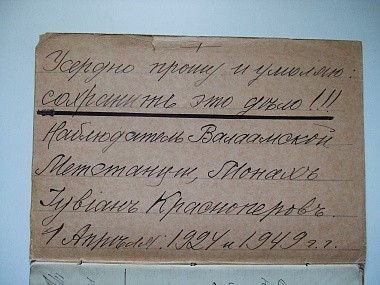 Усердно прошу и умоляю:
сохранить это дѣло!!!
Наблюдатель Валаамской
Метстанции, Монахъ
Іувіанъ Красноперовъ.
1 Апрѣля: 1924 и 1949 г.г.